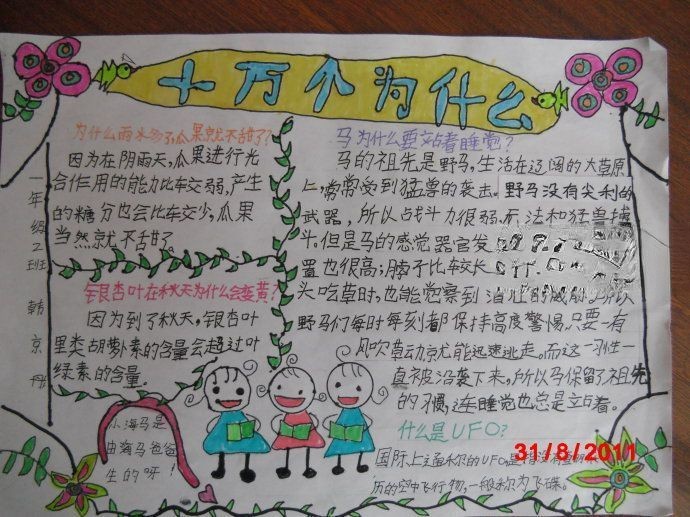 十万个为什么
为什么雨水多了瓜果就不甜了?
因为在阴雨天,瓜果进行光
合作用的能力比较弱,产生
的糖分也会比较少,瓜果
当然就不甜了。
银杏叶在秋天为什么会变黄?
因为到了秋天,银杏叶
里类胡萝卜素的含量会超过叶
绿素的含量。
小海马是
由海马爸爸
生的呀!
一年级2班 韩京丹
马为什么要站着睡觉?
马的祖先是野马,生活在辽阔的大草原
上,常常受到猛兽的袭击。野马没有尖利的
武器,所以战斗力很弱,无法和猛兽搏
斗。但是马的感觉器官发
置也很高;脖子比较长
头吃草时,也能觉察到
野马们每时每刻都保持高度警惕,只要一有
风吹草动就能迅速逃走。而这一习性一
直被沿袭下来,所以马保留了祖先
的习惯,连睡觉也总是立着。
什么是UFO?
国际上通称的UFO是指没有查明来
历的空中飞行物,一般称为飞碟。
31/8/2011